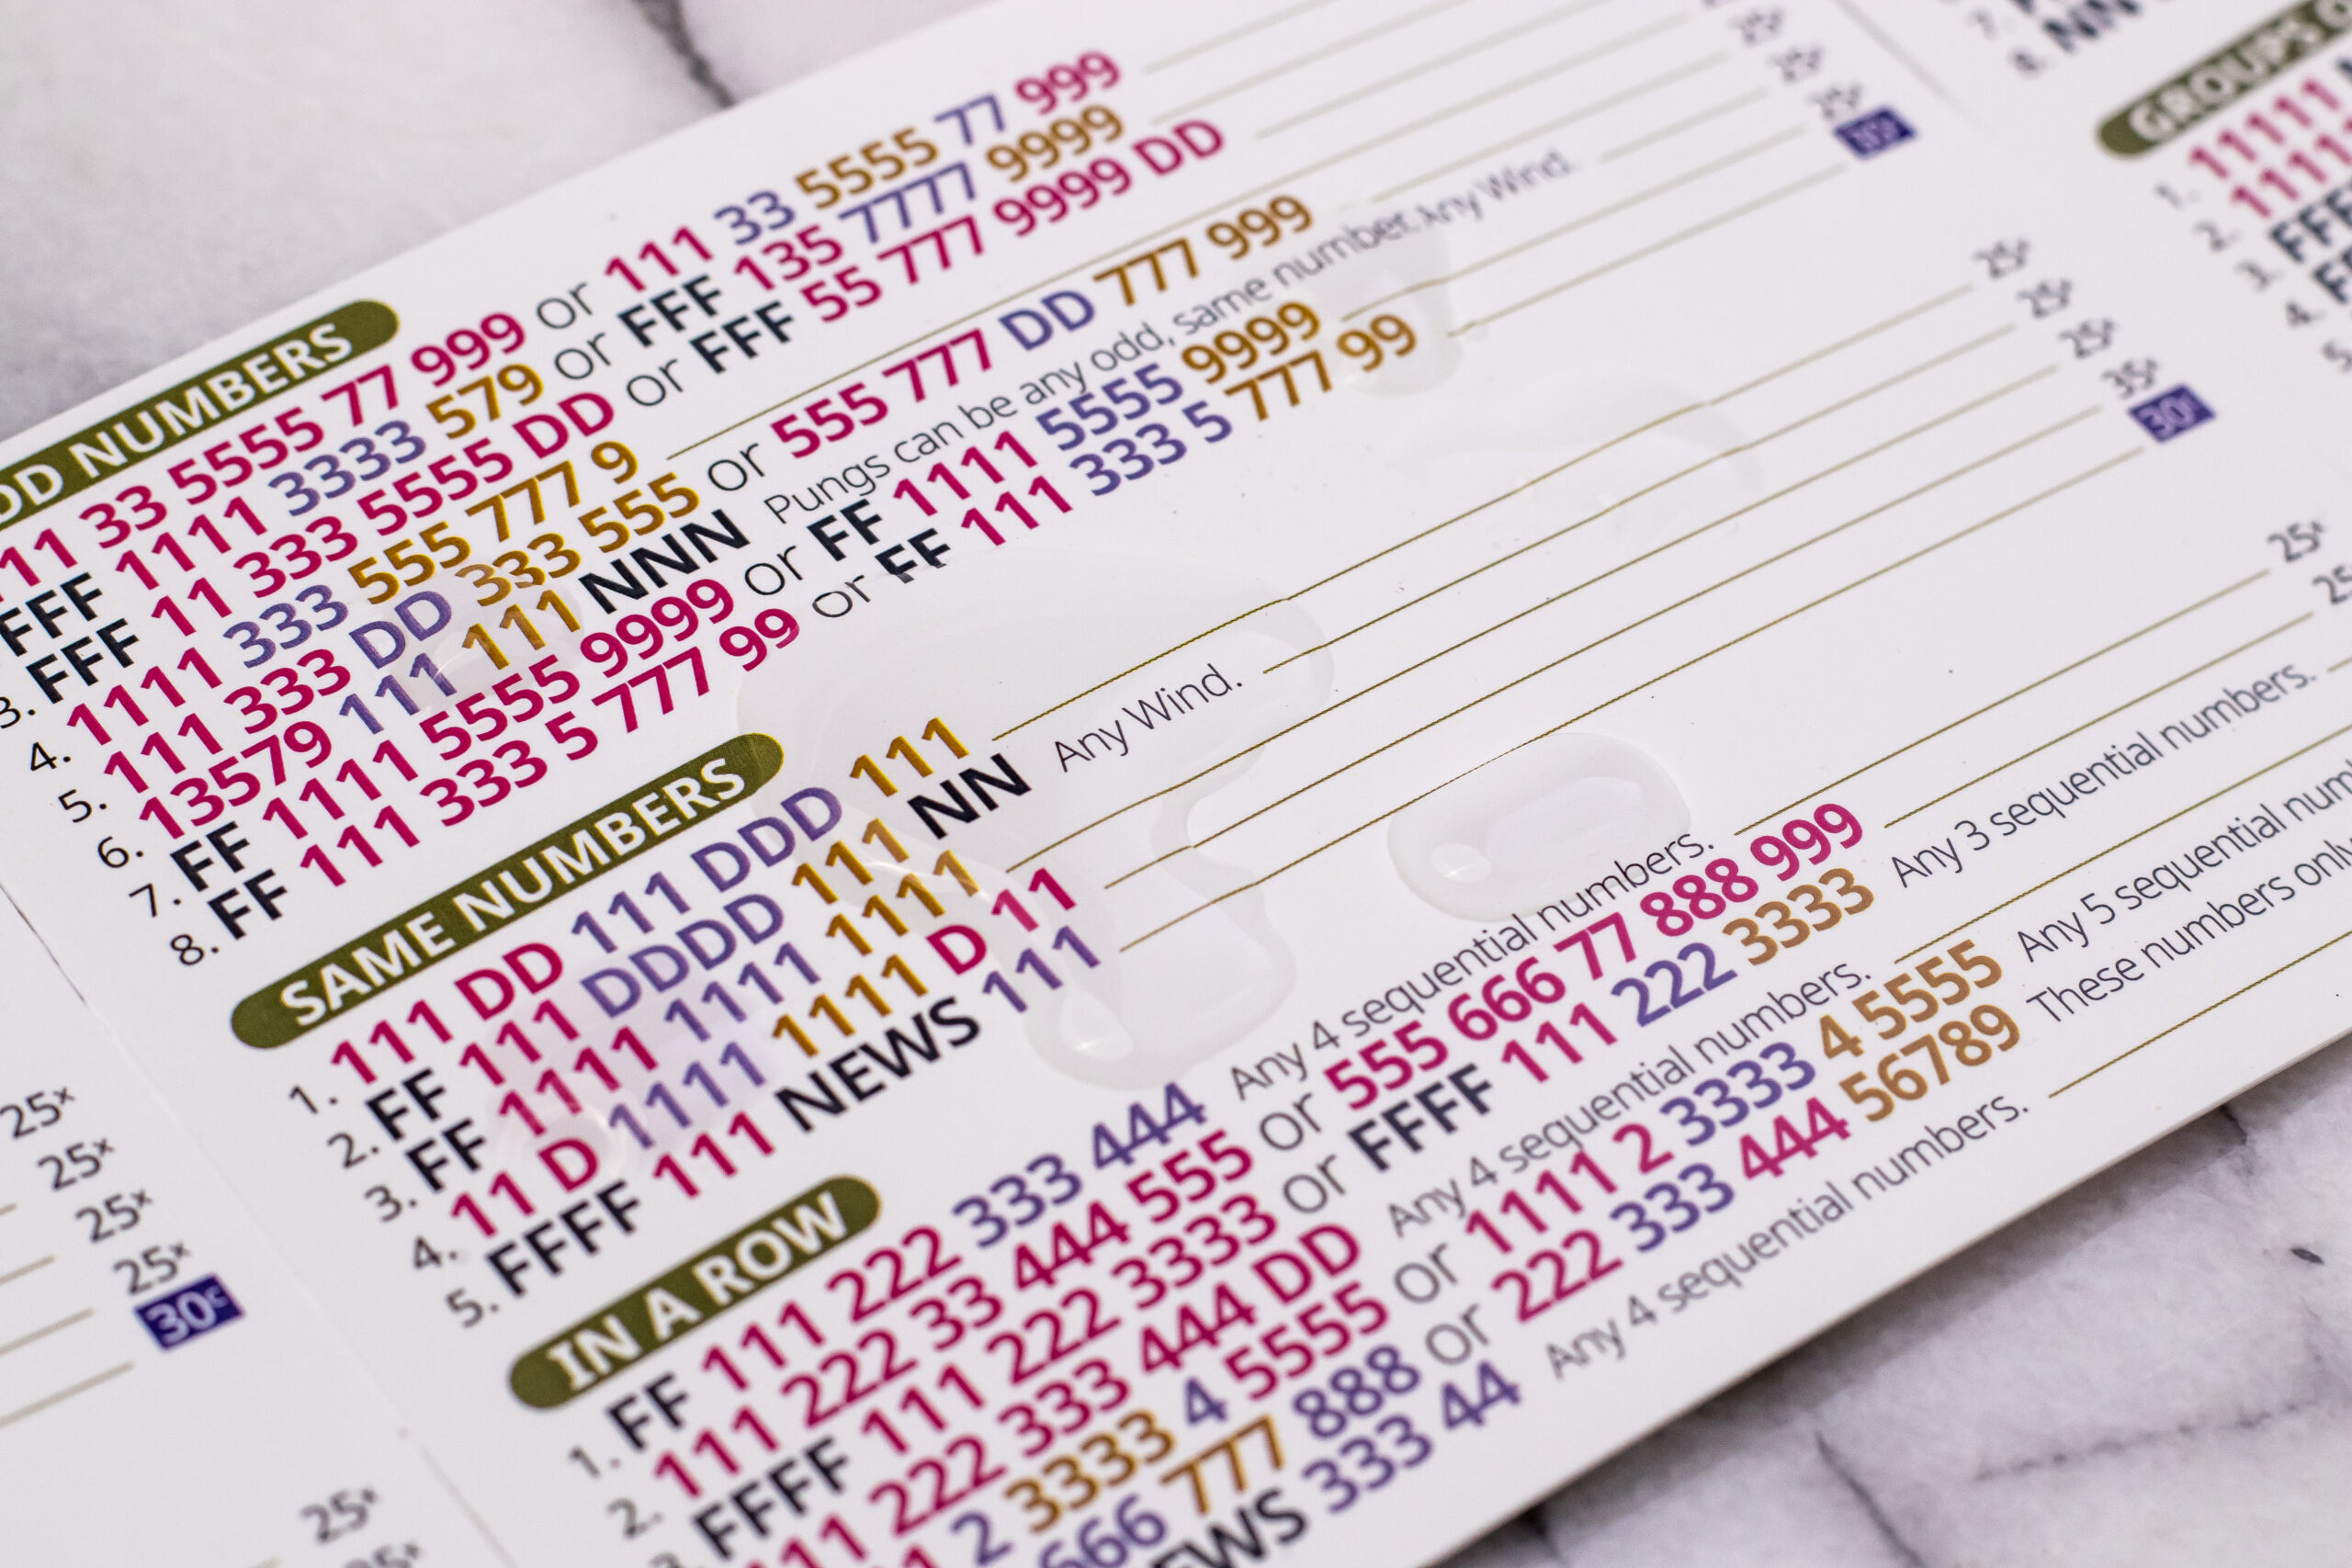 DD NUMBERS
11 33 5555 77 999 or 111 33 5555 77 999
FFF 1111 3333 579 or FFF 135 7777 9999
3. FFF 11 333 5555 DD or FFF 55 777 9999 DD
4. 1111 333 555 777 9
5. 111 333 DD 333 555 or 555 777 DD 777 999
6. 13579 111 111 NNN Pungs can be any odd, same number. Any Wind.
7. FF 1111 5555 9999 or FF 1111 5555 9999
8. FF 111 333 5 777 99 or FF 111 333 5 777 99
25x
25x
25x
30c
SAME NUMBERS
1. 111 DD 111 DDD 111 25x
2. FF 111 DDDD 111 NN Any Wind. 25x
3. FF 1111 1111 1111 25x
4. 11 D 1111 1111 D 11 35x
5. FFFF 111 NEWS 111 30c
IN A ROW
1. FF 111 222 333 444 Any 4 sequential numbers. 25x
2. 111 222 33 444 555 or 555 666 77 888 999 25
3. FFFF 111 222 3333 or FFFF 111 222 3333 Any 3 sequential numbers.
111 222 333 444 DD Any 4 sequential numbers.
11 2 3333 4 5555 or 1111 2 3333 4 5555 Any 5 sequential num
666 777 888 or 222 333 444 56789 These numbers only
EWS 333 44 Any 4 sequential numbers.
25x
25x
25x
25x
30c
25x
25x
7.
8. NN
GROUPS O
1. 11111
2. 1111
3. FFF
4. FF
5.